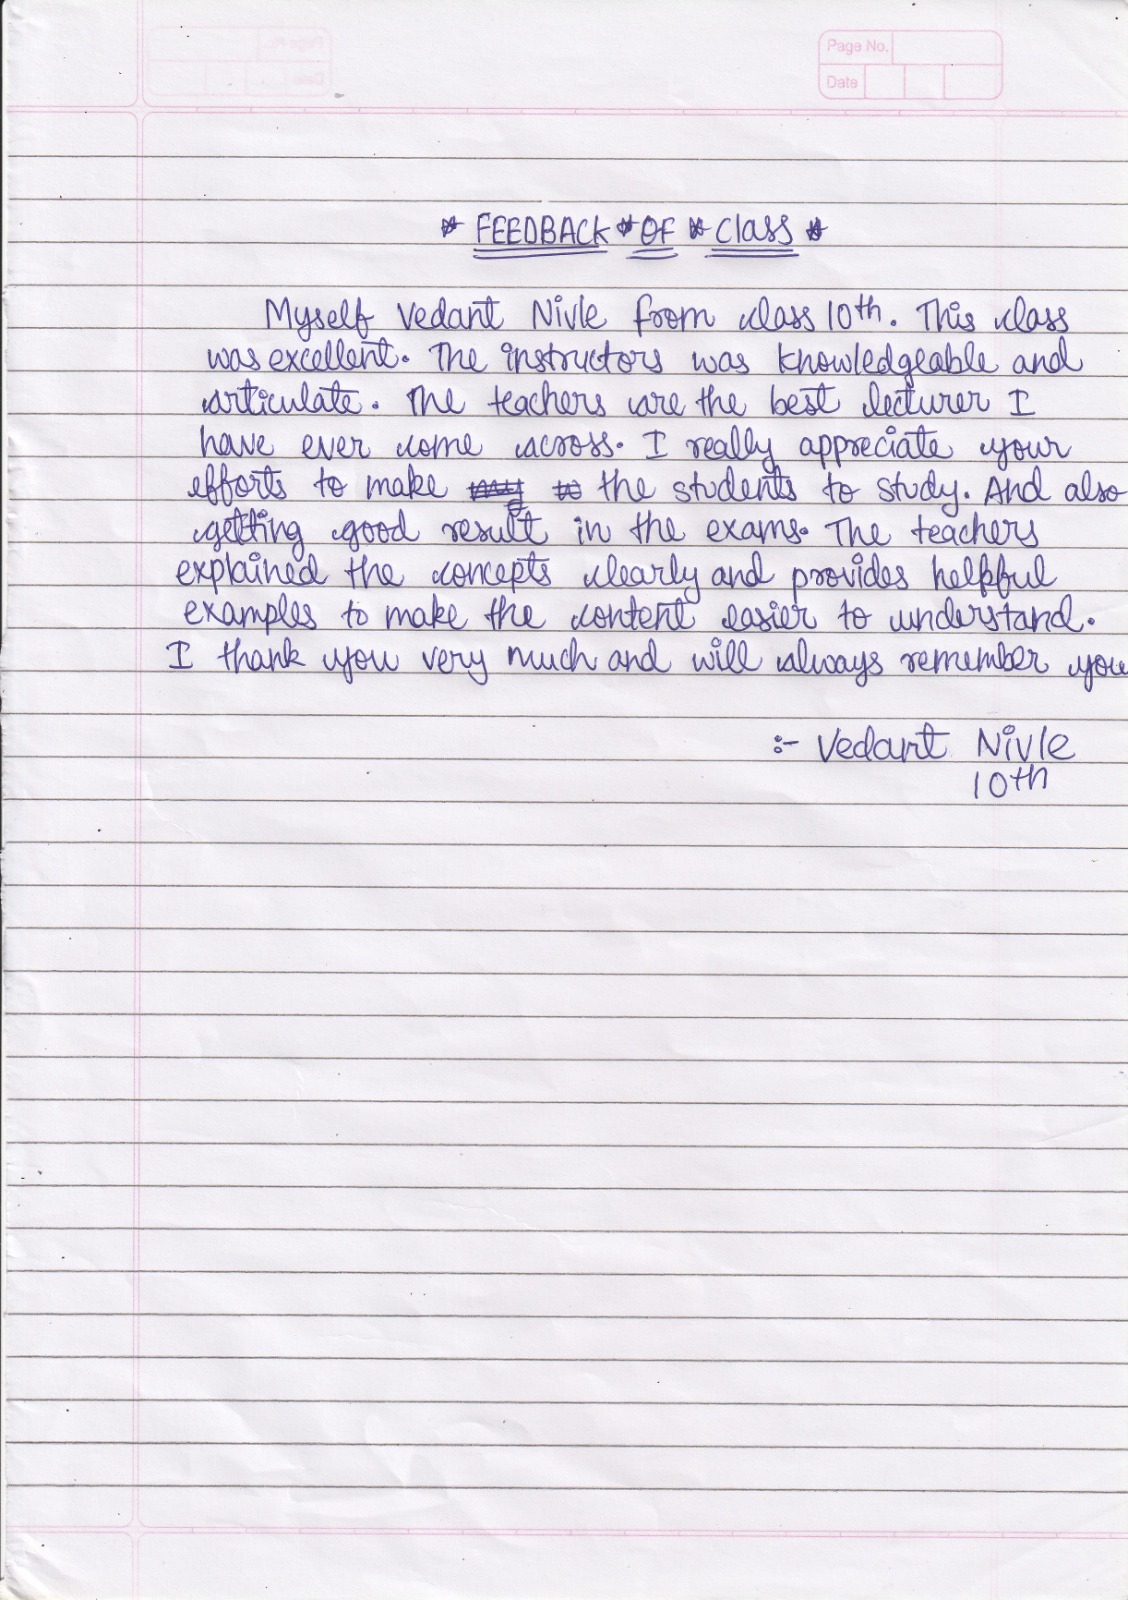 Page No.
Date
* FEEDBACK * OF * Class *
Myself Vedant Nivle from class 10th. This class
was excellent. The instructors was knowledgeable and
articulate. The teachers are the best lecturer I
have ever come across. I really appreciate your
efforts to make the students to study. And also
getting good result in the exams. The teachers
explained the concepts clearly and provides helpful
examples to make the content easier to understand.
I thank you very much and will always remember you
:- Vedant Nivle
10th